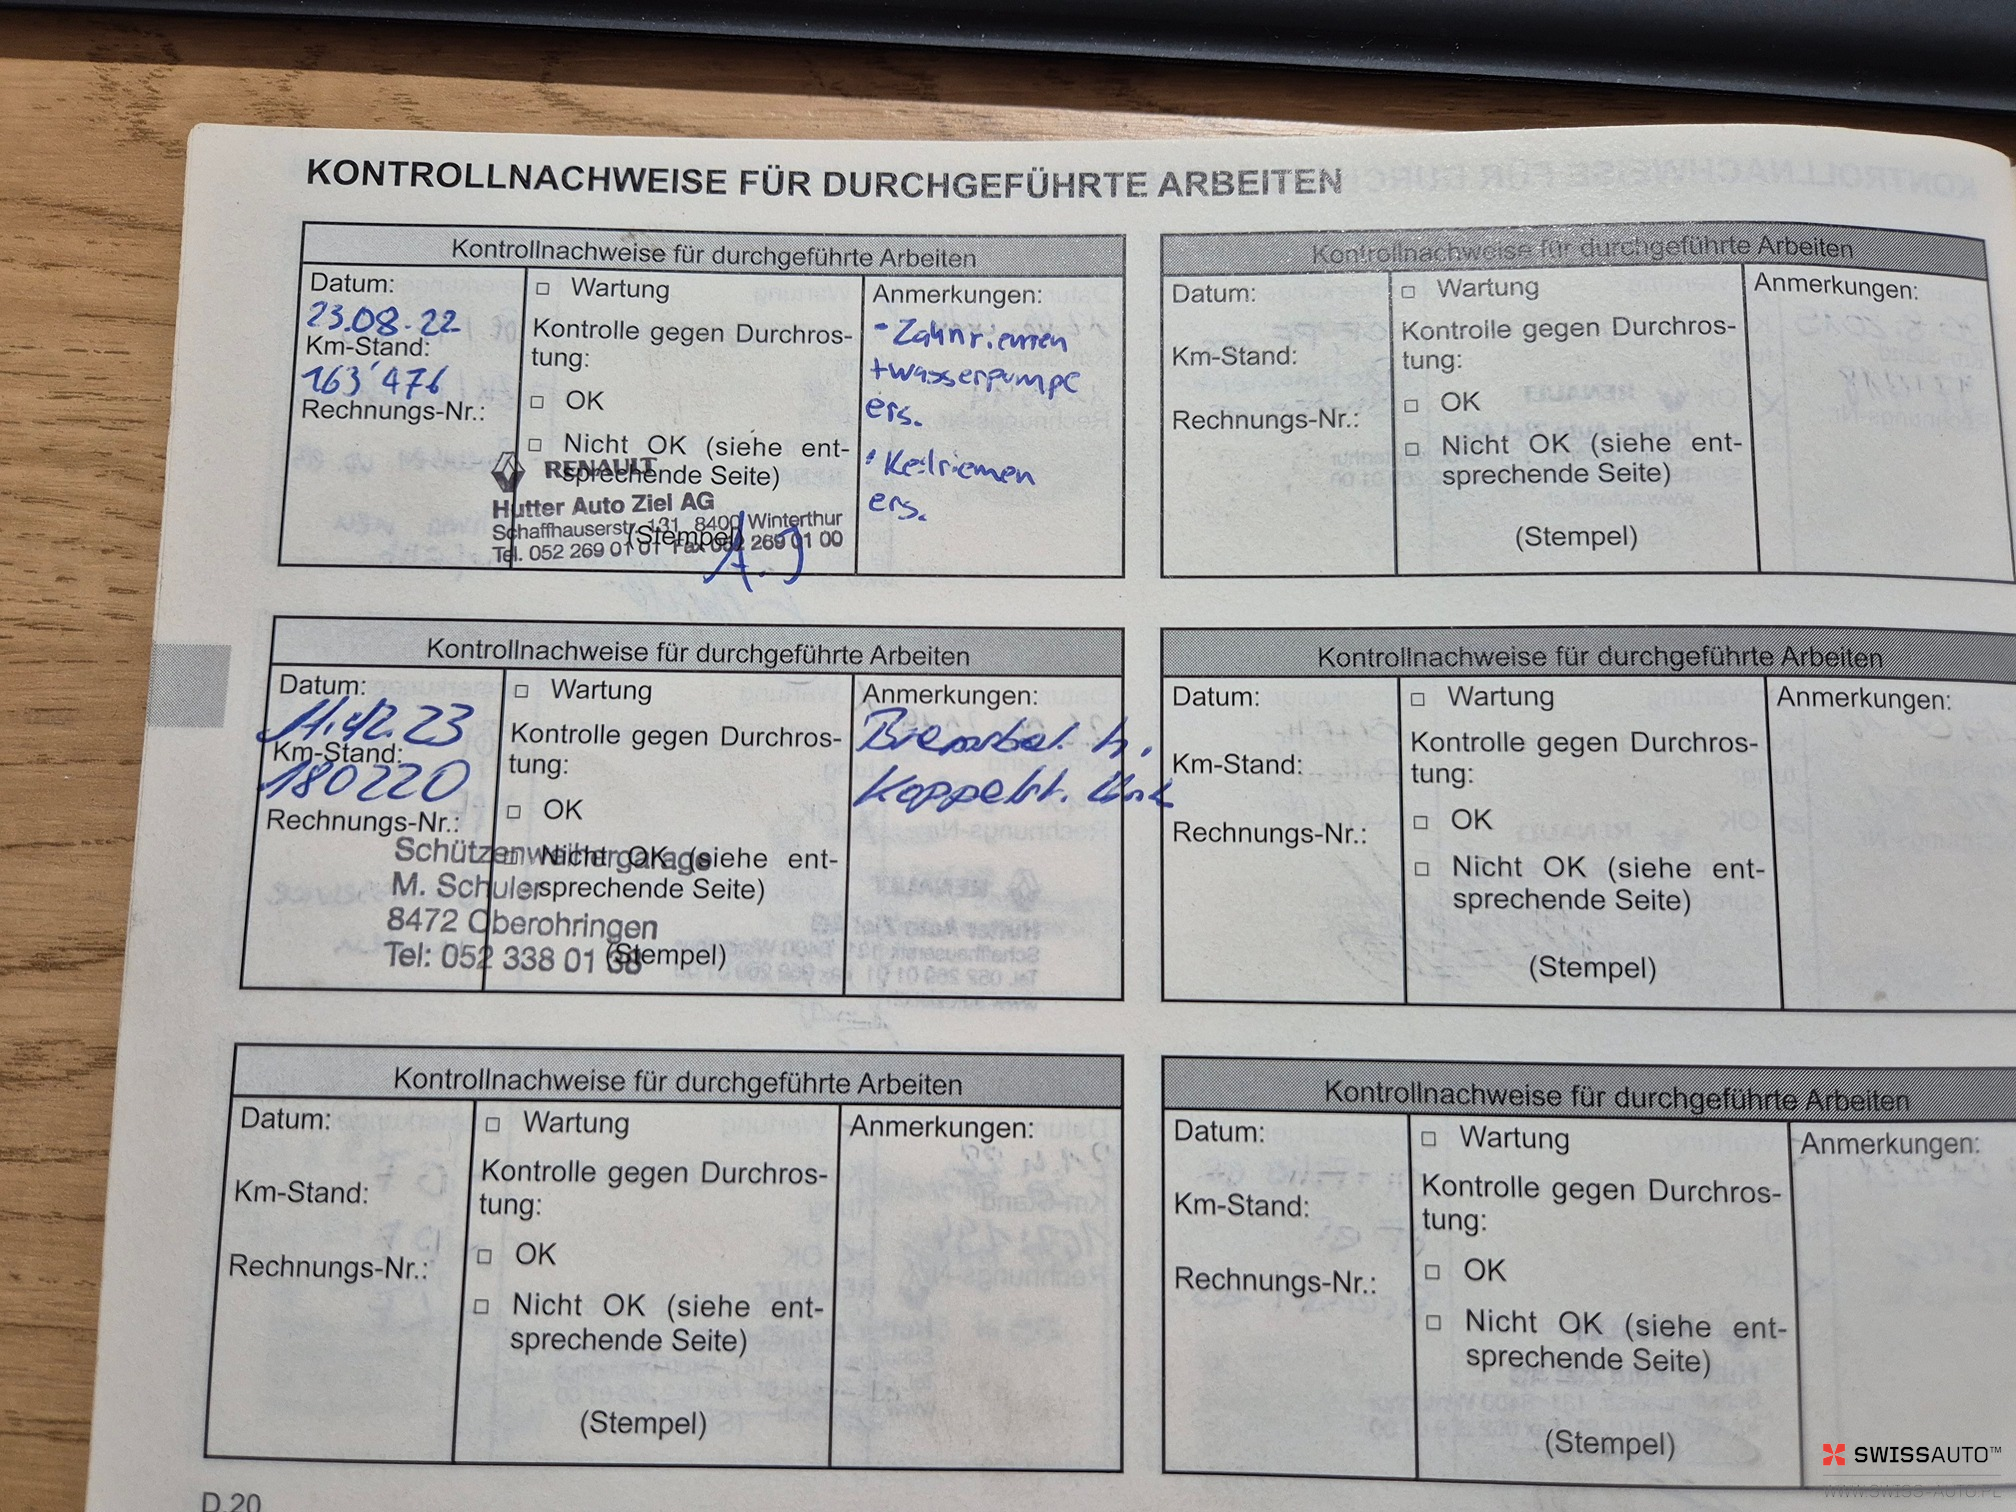 KONTROLLNACHWEISE FÜR DURCHGEFÜHRTE ARBEITEN
Kontrollnachweise für durchgeführte Arbeiten
Datum:
23.08.22
Km-Stand:
163'476
Rechnungs-Nr.:
□ Wartung
Kontrolle gegen Durchros-
tung:
□ OK
□ Nicht OK (siehe ent-
sprechende Seite)
(Stempel)
RENAULT
Hutter Auto Ziel AG
Schaffhauserstr. 131, 8400 Winterthur
Tel. 052 269 01 01 Fax 052 269 01 00
Anmerkungen:
- Zahnriemen
+ wasserpumpe
ers.
Keilriemen
ers.
Kontrollnachweise für durchgeführte Arbeiten
Datum:
Km-Stand:
Rechnungs-Nr.:
□ Wartung
Kontrolle gegen Durchros-
tung:
□ OK
□ Nicht OK (siehe ent-
sprechende Seite)
(Stempel)
Anmerkungen:
Kontrollnachweise für durchgeführte Arbeiten
Datum:
11.12.23
Km-Stand:
180220
Rechnungs-Nr.:
□ Wartung
Kontrolle gegen Durchros-
tung:
□ OK
□ Nicht OK (siehe ent-
sprechende Seite)
(Stempel)
Schützenweihergarage
M. Schuler
8472 Oberohringen
Tel: 052 338 01 68
Anmerkungen:
Kontrollnachweise für durchgeführte Arbeiten
Datum:
Km-Stand:
Rechnungs-Nr.:
□ Wartung
Kontrolle gegen Durchros-
tung:
□ OK
□ Nicht OK (siehe ent-
sprechende Seite)
(Stempel)
Anmerkungen:
Kontrollnachweise für durchgeführte Arbeiten
Datum:
Km-Stand:
Rechnungs-Nr.:
□ Wartung
Kontrolle gegen Durchros-
tung:
□ OK
□ Nicht OK (siehe ent-
sprechende Seite)
(Stempel)
Anmerkungen:
Kontrollnachweise für durchgeführte Arbeiten
Datum:
Km-Stand:
Rechnungs-Nr.:
□ Wartung
Kontrolle gegen Durchros-
tung:
□ OK
□ Nicht OK (siehe ent-
sprechende Seite)
(Stempel)
Anmerkungen:
D.20
SWISSAUTO™
WWW.SWISS-AUTO.PL